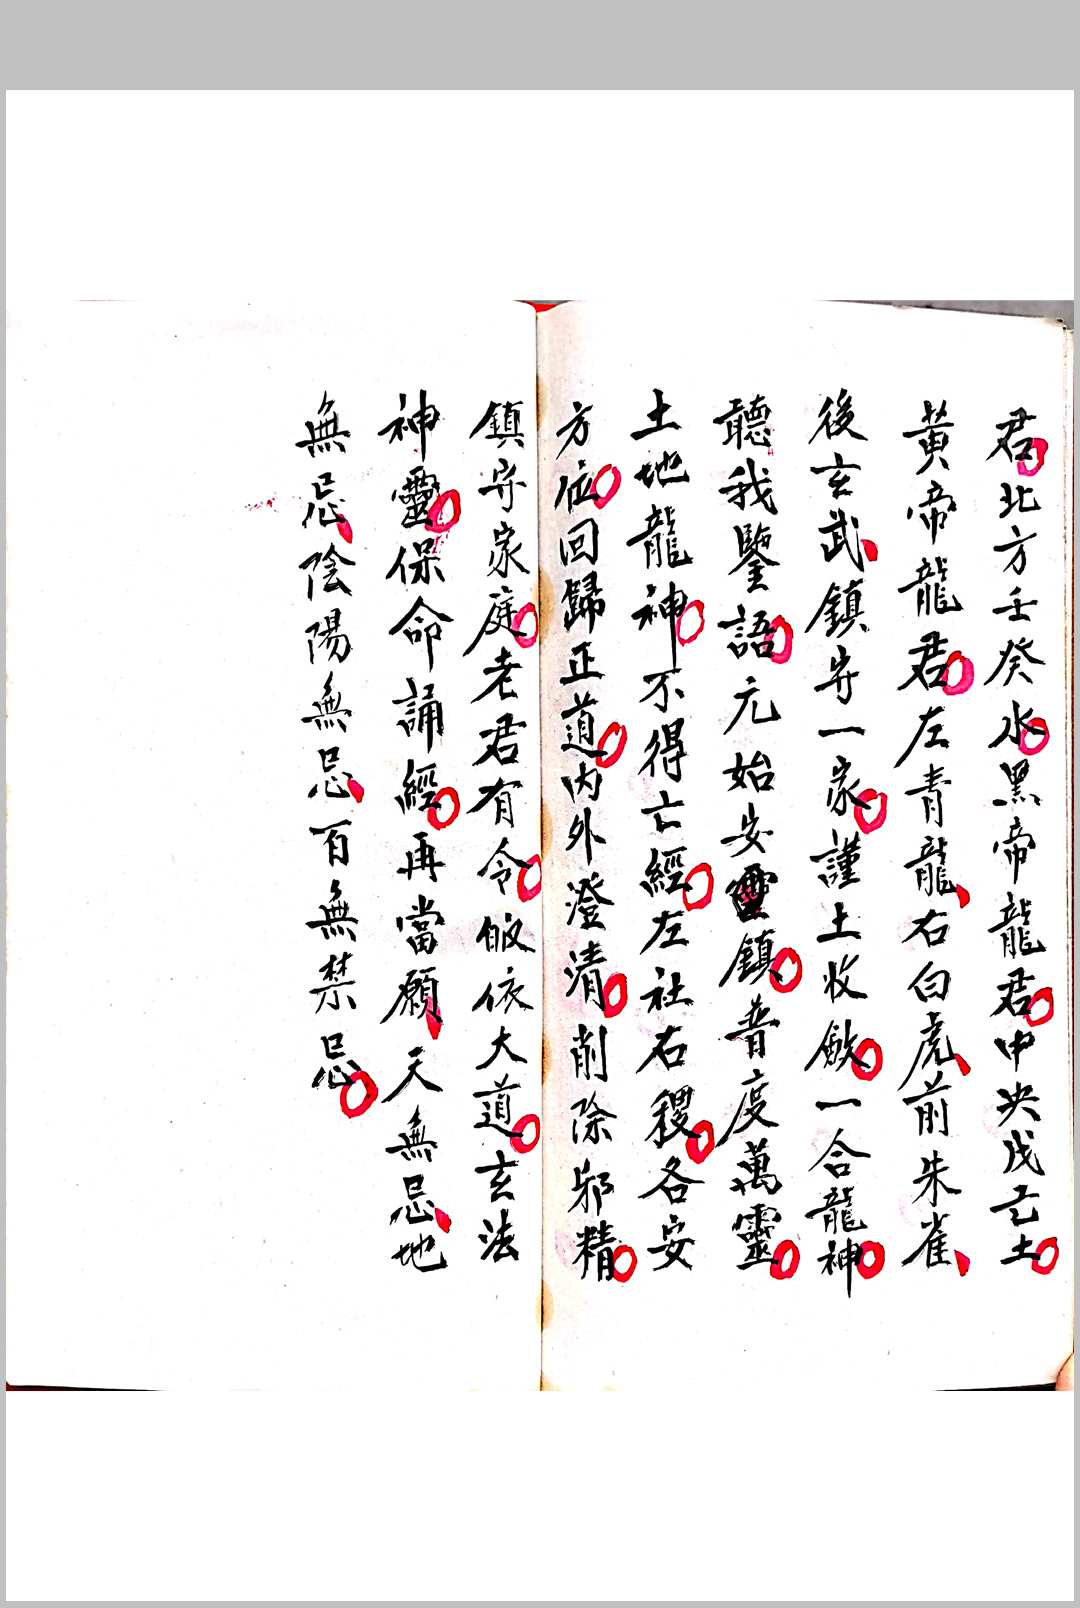 君北方壬癸水黑帝龍君中央戊己土
黃帝龍君左青龍右白虎前朱雀
後玄武鎮守一家謹土收斂一合龍神
聽我鑒語元始安靈鎮普度萬靈
土地龍神不得亡經左社右稷各安
方位回歸正道內外澄清削除邪精
鎮守家庭老君有令皈依大道玄法
神靈保命誦經再當願天無忌地
無忌陰陽無忌百無禁忌